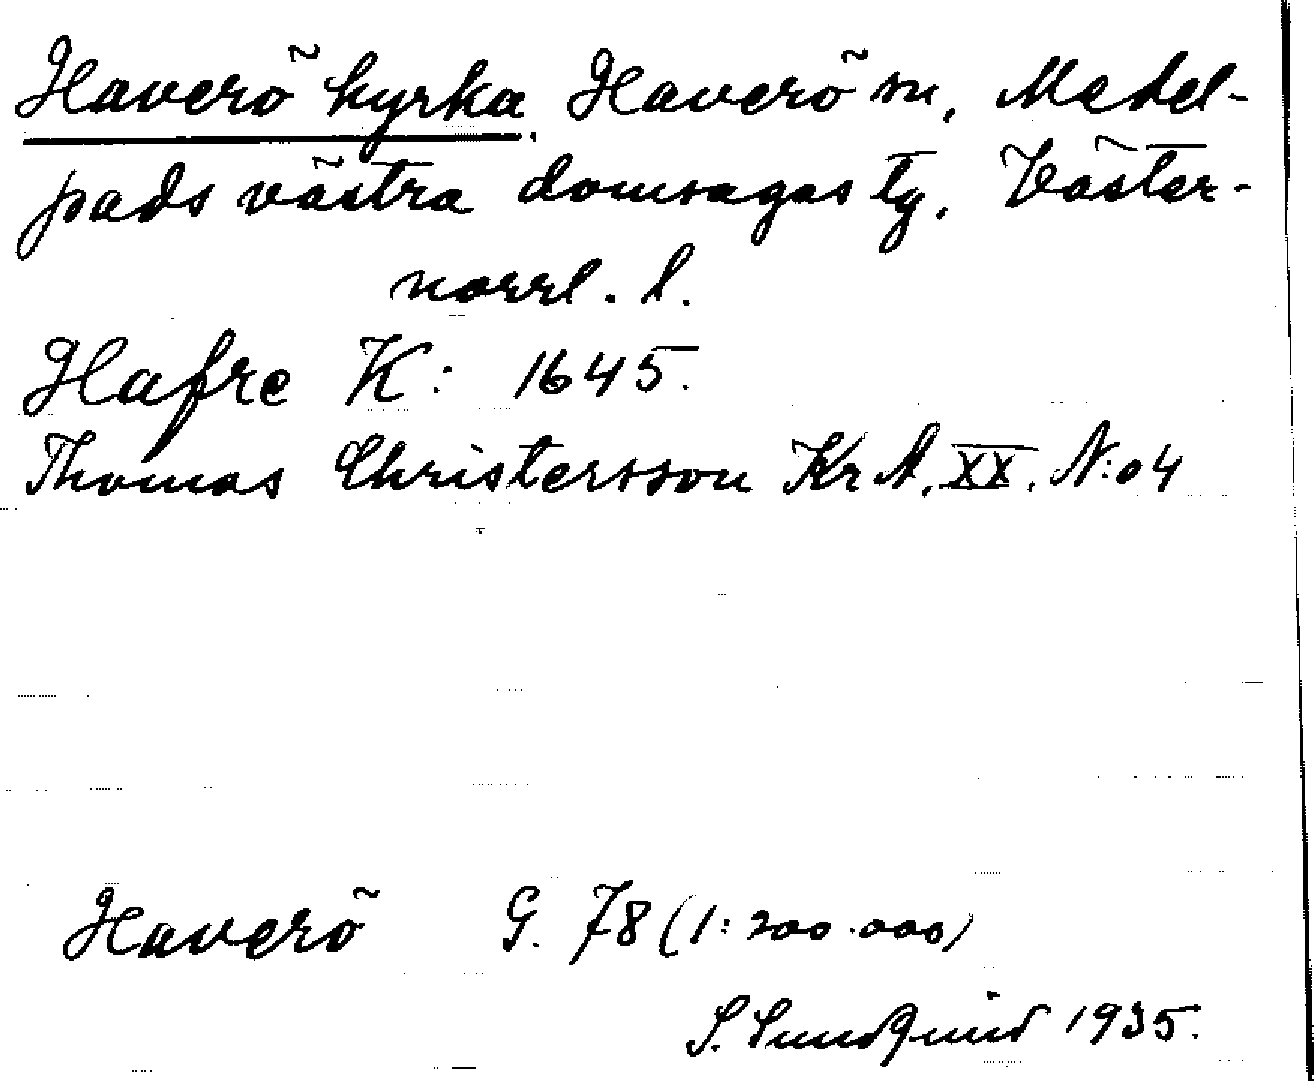 Haverö kyrka. Haverö sn, Medel-
pads västra domsagas tg, Väster-
norrl. l.
Hafre K: 1645.
Thomas Christersson Kr A. XX. N:o 4
Haverö G. 78 (1:200.000)
S. Sundquist 1935.